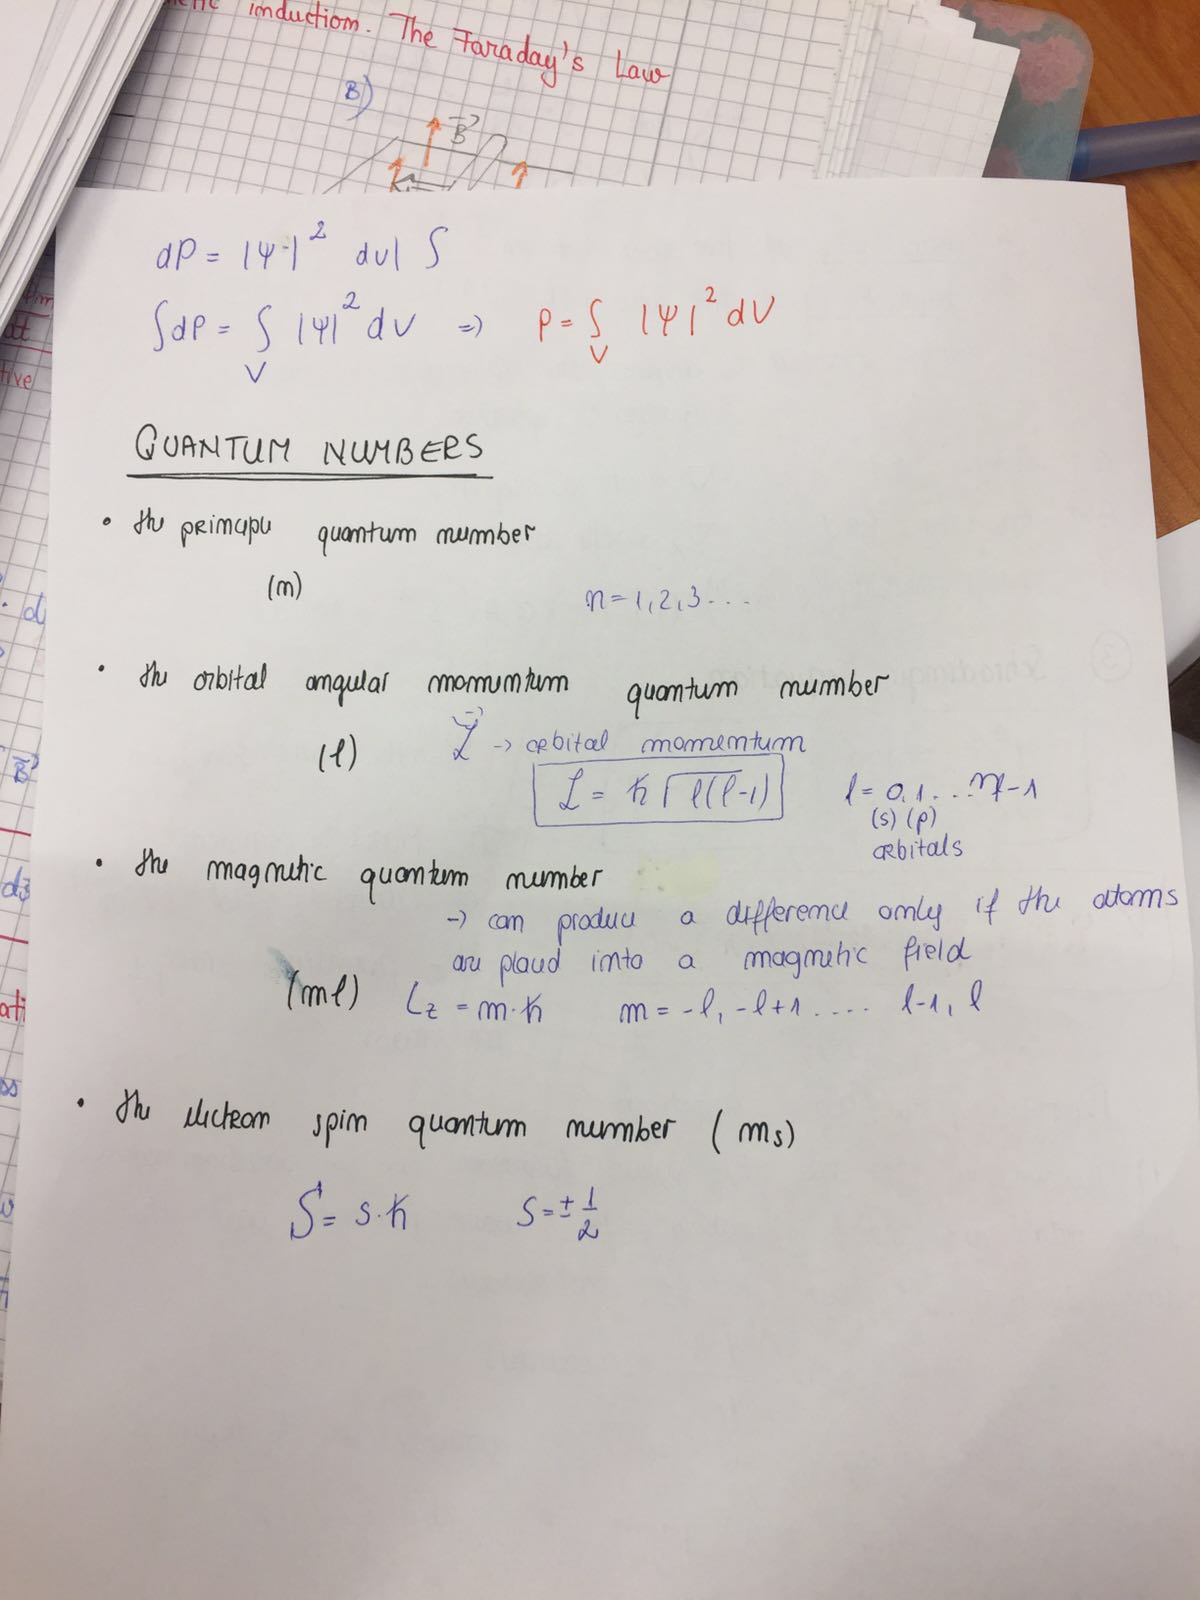 induction. The Faraday's Law
B)
B
dP = |Ψ|² dv| ∫
∫dP = ∫ |Ψ|² dV => P = ∫ |Ψ|² dV
V V
QUANTUM NUMBERS
• the principle quantum number
(n) n = 1, 2, 3 ...
• the orbital angular momentum quantum number
(l) L → orbital momentum
L = ħ √l(l-1) l = 0, 1 ... n-1
(s) (p)
orbitals
• the magnetic quantum number
→ can produce a difference only if the atoms
are placed into a magnetic field
(ml) Lz = m·ħ m = -l, -l+1 .... l-1, l
• the electron spin quantum number (ms)
S = s·ħ S = ± 1/2